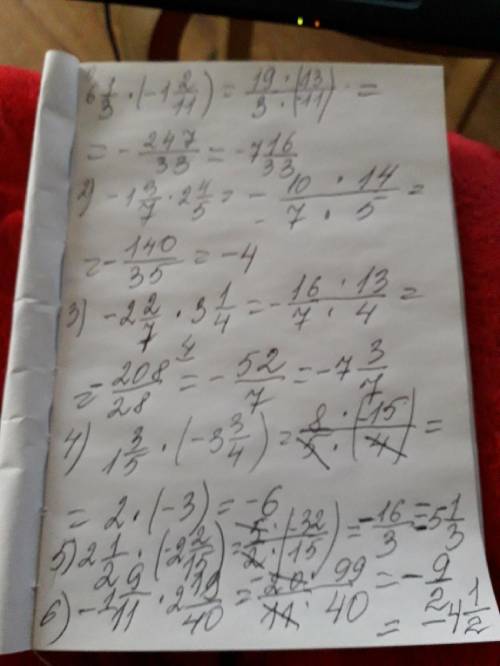 6 1/3 · (-1 2/11) = 19 · (13) / 3 · (-11) =
= - 247/33 = -7 16/33
2) -1 3/7 · 2 4/5 = - 10 · 14 / 7 · 5 =
= - 140/35 = -4
3) -2 2/7 · 3 1/4 = - 16 · 13 / 7 · 4 =
= - 208/28 = - 52/7 = -7 3/7
4) 1 3/5 · (-3 3/4) = 8/5 · (-15/4) =
= 2 · (-3) = -6
5) 2 1/2 · (-2 2/15) = 5/2 · (-32/15) = -16/3 = -5 1/3
6) -1 9/11 · 2 19/40 = -20 · 99 / 11 · 40 = - 9/2
= -4 1/2